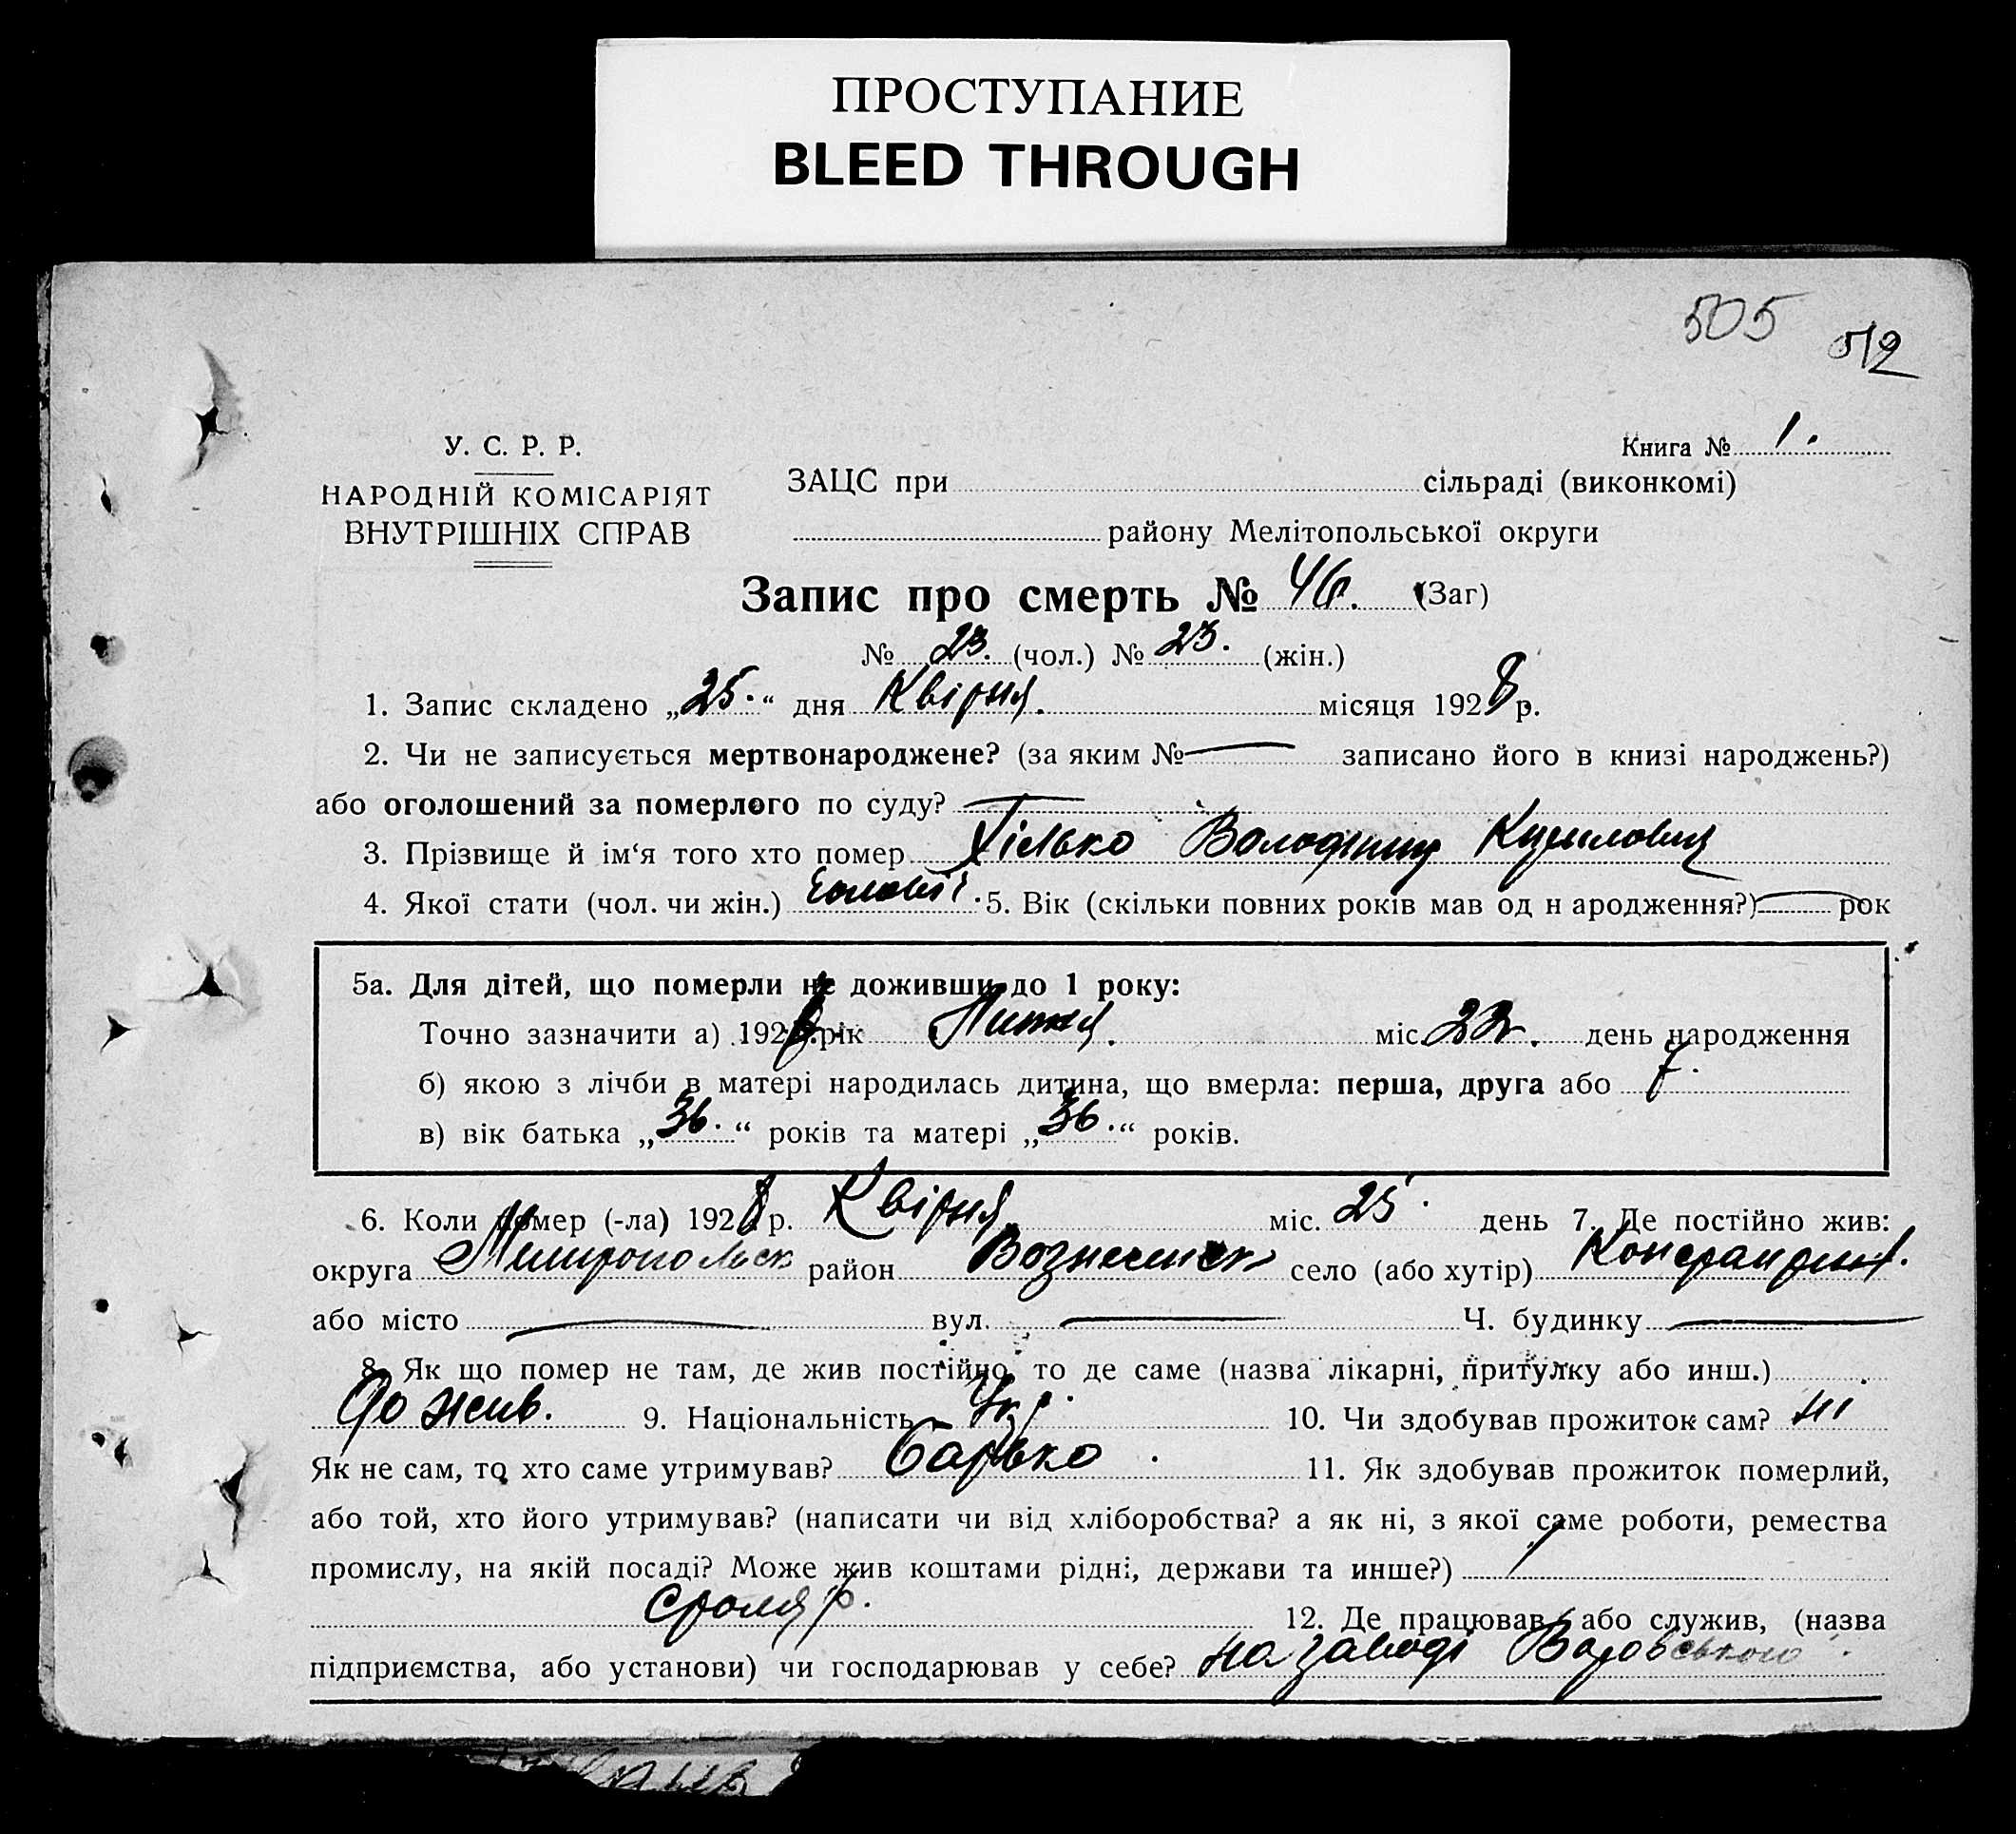 ПРОСТУПАНИЕ
BLEED THROUGH
505 512
У. С. Р. Р.
НАРОДНІЙ КОМІСАРІЯТ
ВНУТРІШНІХ СПРАВ
Книга № 1.
ЗАЦС при сільраді (виконкомі)
району Мелітопольської округи
Запис про смерть № 46. (Заг)
№ 23. (чол.) № 23. (жін.)
1. Запис складено „25.“ дня Квітня. місяця 1928 р.
2. Чи не записується мертвонароджене? (за яким № — записано його в книзі народжень?)
або оголошений за померлого по суду? —
3. Прізвище й ім‘я того хто помер Володимир
4. Якої стати (чол. чи жін.) 5. Вік (скільки повних років мав од н ародження?) — рок
5а. Для дітей, що померли не доживши до 1 року:
Точно зазначити а) 192 рік міс. день народження
б) якою з лічби в матері народилась дитина, що вмерла: перша, друга або 7.
в) вік батька „36.“ років та матері „36.“ років.
6. Коли помер (-ла) 1928 р. Квітня міс. 25 день 7. Де постійно жив:
округа Мелитопольск район Вознесенск село (або хутір) Констрантин.
або місто — вул. — Ч. будинку —
8. Як що помер не там, де жив постійно, то де саме (назва лікарні, притулку або инш.)
де жив. 9. Національність Укр. 10. Чи здобував прожиток сам? ні
Як не сам, то хто саме утримував? Батько 11. Як здобував прожиток померлий,
або той, хто його утримував? (написати чи від хліборобства? а як ні, з якої саме роботи, ремества
промислу, на якій посаді? Може жив коштами рідні, держави та инше?)
столяр. 12. Де працював або служив, (назва
підприємства, або установи) чи господарював у себе? на заводі Воровського